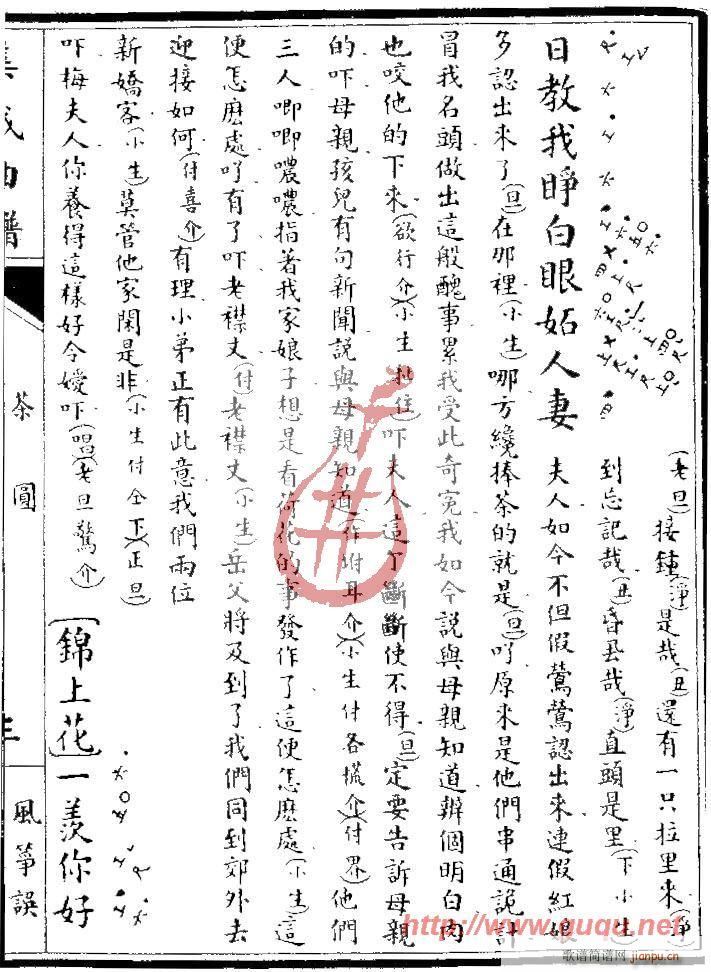 (老旦)接鍾(淨)是哉(丑)還有一只拉里來(淨)
到忘記哉(丑)昏哉(淨)直頭是里(下小生
日教我睜白眼妬人妻 夫人如今不但假鶯鶯認出來連假紅娘
多認出來了(旦)在那裡(小生)哪方纔捧茶的就是(旦)吖原來是他們串通詭計
冒我名頭做出這般醜事累我受此奇冤我如今說與母親知道辨個明白肉
也咬他的下來(欲行介)(小生扯住)吓夫人這个斷斷使不得(旦)一定要告訴母親
的吓母親孩兒有句新聞說與母親知道(作附耳介)(小生付各慌介)(付界)他們
三人唧唧噥噥指著我家娘子想是看荷花的事發作了這便怎麼處(小生)這
便怎麼處吖有了吓老襟丈(付)老襟丈(小生)岳父將及到了我們同到郊外去
迎接如何(付喜介)有理小弟正有此意我們兩位
新嬌客(小生)莫管他家閑是非(小生付仝下)(正旦)
吓梅夫人你養得這樣好令嬡吓(唱)(老旦驚介)[錦上花]一羨你好
集成曲譜
茶圓
風箏誤
http://www.guqu.net
歌谱简谱网
jianpu.cn